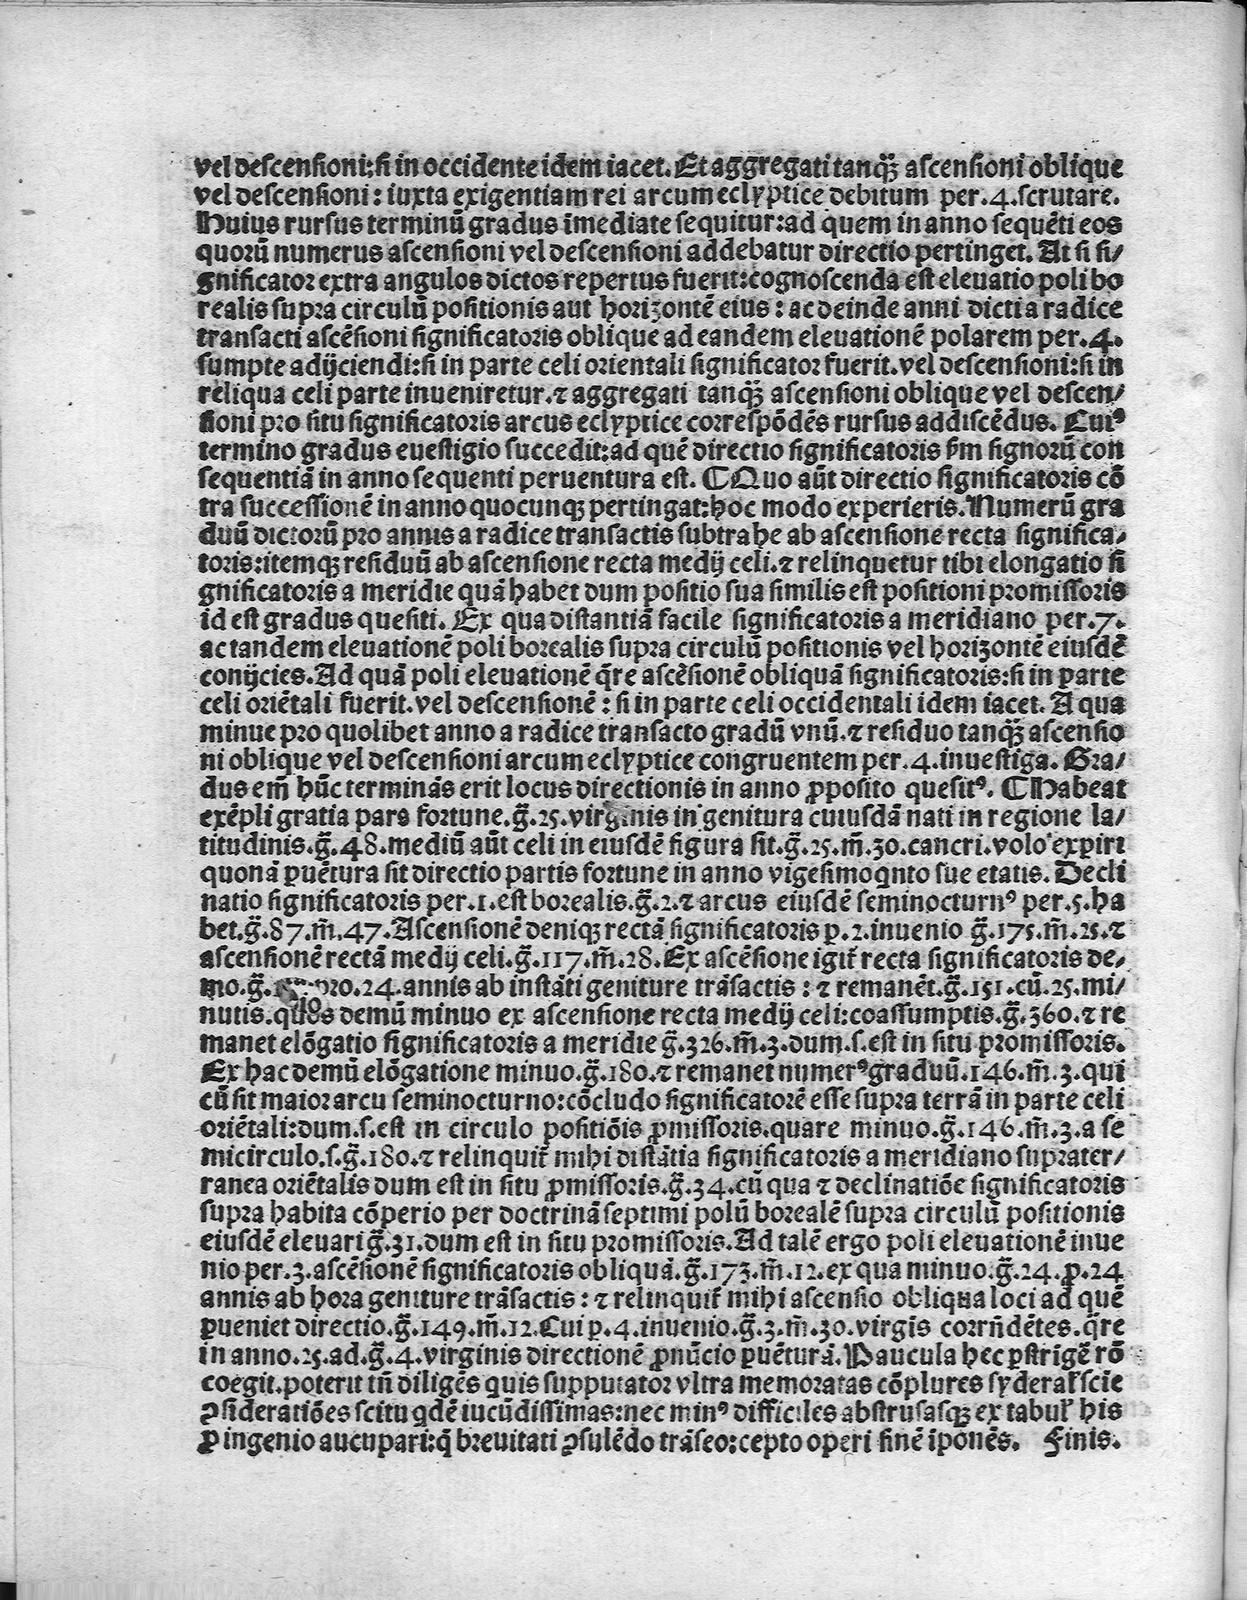 vel descensioni: si in occidente idem iacet. Et aggregati tanqȝ̈ ascensioni oblique
vel descensioni: iuxta exigentiam rei arcum eclyptice debitum per .4. scrutare.
Huius rursus terminū gradus īmediate sequitur: ad quem in anno sequēti eos
quorū numerus ascensioni vel descensioni addebatur directio pertinget. At si si/
gnificator extra angulos dictos repertus fuerit: cognoscenda est eleuatio poli bo
realis supra circulū positionis aut horizontē eius: ac deinde anni dicti a radice
transacti ascēsioni significatoris oblique ad eandem eleuationē polarem per .4.
sumpte adijciendi: si in parte celi orientali significator fuerit. vel descensioni: si in
reliqua celi parte inueniretur. ⁊ aggregati tanqȝ̈ ascensioni oblique vel descen/
sioni pro situ significatoris arcus eclyptice correspōdēs rursus addiscēdus. Cuiꝰ
termino gradus euestigio succedit: ad quē directio significatoris ẜm signorū con
sequentiā in anno sequenti peruentura est. ¶ Quo aūt directio significatoris cō
tra successionē in anno quocunqȝ pertingat: hoc modo experieris. Numerū gra
duū dictorū pro annis a radice transactis subtrahe ab ascensione recta significa/
toris: itemqȝ residuū ab ascensione recta medij celi. ⁊ relinquetur tibi elongatio si
gnificatoris a meridie quā habet dum positio sua similis est positioni promissoris
id est gradus quesiti. Ex qua distantiā facile significatoris a meridiano per .7.
ac tandem eleuationē poli borealis supra circulū positionis vel horizontē eiusdē
conijcies. Ad quā poli eleuationē q̄re ascēsionē obliquā significatoris: si in parte
celi oriētali fuerit. vel descensionē: si in parte celi occidentali idem iacet. A qua
minue pro quolibet anno a radice transacto gradū vnū. ⁊ residuo tanqȝ̈ ascensio
ni oblique vel descensioni arcum eclyptice congruentem per .4. inuestiga. Gra/
dus em̄ hūc terminās erit locus directionis in anno ꝓposito quesitꝰ. ¶ Habeat
exēpli gratia pars fortune. g̃. 25. virginis in genitura cuiusdā nati in regione la/
titudinis. g̃. 48. mediū aūt celi in eiusdē figura sit. g̃. 25. m̃. 30. cancri. volo expiri
quonā ꝑuētura sit directio partis fortune in anno vigesimoqnto sue etatis. Decli
natio significatoris per .1. est borealis. g̃. 2. ⁊ arcus eiusdē seminocturnꝰ per .5. ha
bet. g̃. 87. m̃. 47. Ascensionē deniqȝ rectā significatoris ꝑ .2. inuenio g̃. 175. m̃. 25. ⁊
ascensionē rectā medij celi. g̃. 117. m̃. 28. Ex ascēsione igit̃ recta significatoris de/
mo. g̃. pro .24. annis ab instāti geniture trāsactis: ⁊ remanēt. g̃. 151. cū. 25. mi/
nutis. quos demū minuo ex ascensione recta medij celi: coassumptis. g̃. 360. ⁊ re
manet elōgatio significatoris a meridie g̃. 326. m̃. 3. dum .s. est in situ promissoris.
Ex hac demū elōgatione minuo. g̃. 180. ⁊ remanet numerꝰ graduū. 146. m̃. 3. qui
cū sit maior arcu seminocturno: cōcludo significatorē esse supra terrā in parte celi
oriētali: dum .s. est in circulo positiōis ꝓmissoris. quare minuo. g̃. 146. m̃. 3. a se
micirculo .s. g̃. 180. ⁊ relinquit̃ mihi distātia significatoris a meridiano suprater/
ranea oriētalis dum est in situ ꝓmissoris. g̃. 34. cū qua ⁊ declinatiōe significatoris
supra habita cōperio per doctrinā septimi polū borealē supra circulū positionis
eiusdē eleuari g̃. 31. dum est in situ promissoris. Ad talē ergo poli eleuationē inue
nio per .3. ascēsionē significatoris obliquā. g̃. 173. m̃. 12. ex qua minuo. g̃. 24. ꝑ .24
annis ab hora geniture trāsactis: ⁊ relinquit̃ mihi ascensio obliqua loci ad quē
ꝑueniet directio. g̃. 149. m̃. 12. Cui ꝑ .4. inuenio. g̃. 3. m̃. 30. virgīs corrn̄dētes. q̄re
in anno .25. ad. g̃. 4. virginis directionē ꝓnūcio ꝑuēturā. Paucula hec ꝑstrigē rō
coegit. poterit tn̄ diligēs quis supputator vltra memoratas cōplures syderal̃ scie
ꝯsideratiōes scitu qdē iucūdissimas: nec minꝰ difficiles abstrusasqȝ ex tabul̃ his
ꝓ ingenio aucupari: q̄ breuitati ꝯsulēdo trāseo: cepto operi finē īponēs. Finis.